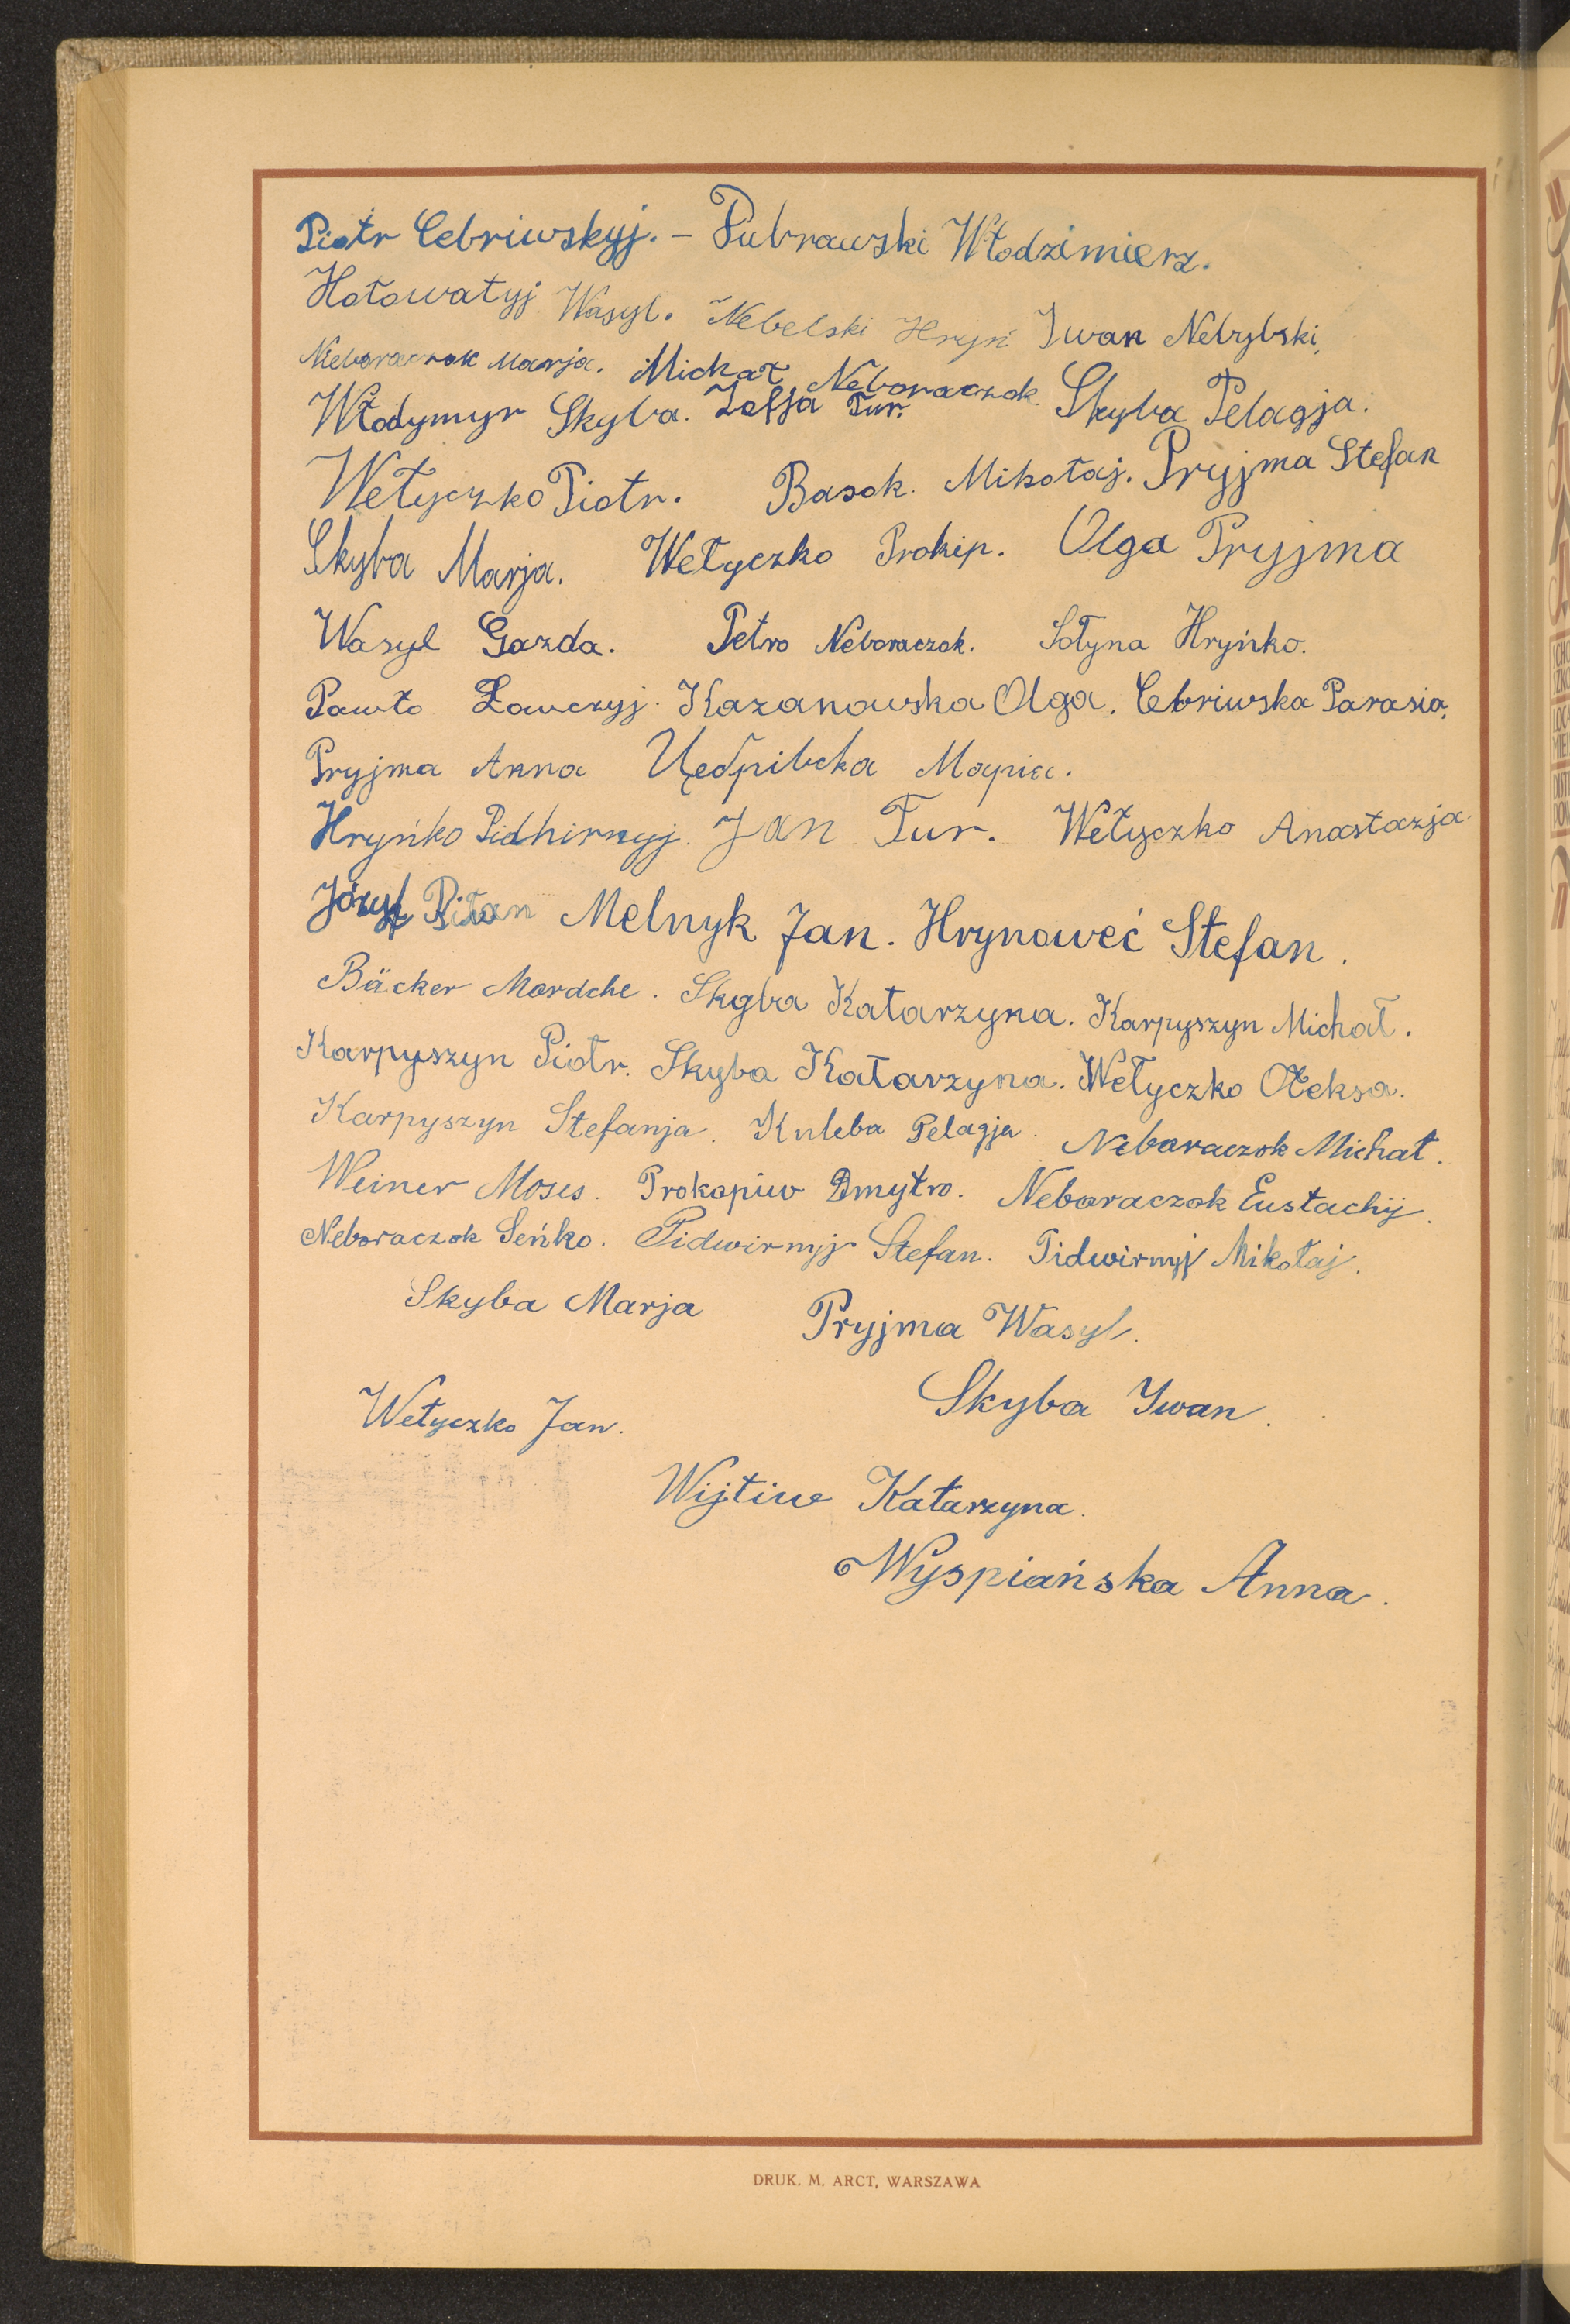 Piotr Cebriwskyj. – Dubrawski Włodzimierz.
Hołowatyj Wasyl. Nebelski Hryń Iwan Nebylski,
Nieboraczok Marja. Michał Neboraczok.
Włodymyr Skyba. Zofja Tur. Skyba Pelagja.
Wełyczko Piotr. Basok. Mikołaj. Pryjma Stefan
Skyba Marja. Wełyczko Prokip. Olga Pryjma
Wasyl Gazda. Petro Neboraczok. Sołyna Hryńko.
Pawło Ławczyj. Kazanowska Olga. Cebriwska Parasia.
Pryjma Anna Цебрівска Марія.
Hryńko Pidhirnyj. Jan Tur. Wełyczko Anastazja
Józef Melnyk Jan. Hrynoweć Stefan.
Bäcker Mordche. Skyba Katarzyna. Karpyszyn Michał.
Karpyszyn Piotr. Skyba Katarzyna. Wełyczko Ołeksa.
Karpyszyn Stefanja. Kuleba Pelagja. Neboraczok Michał.
Weiner Moses. Prokopiw Dmytro. Neboraczok Eustachij.
Neboraczok Seńko. Pidwirnyj Stefan. Pidwirnyj Mikołaj.
Skyba Marja Pryjma Wasyl.
Wełyczko Jan. Skyba Iwan.
Wijtiw Katarzyna.
Wyspiańska Anna.
DRUK. M. ARCT, WARSZAWA